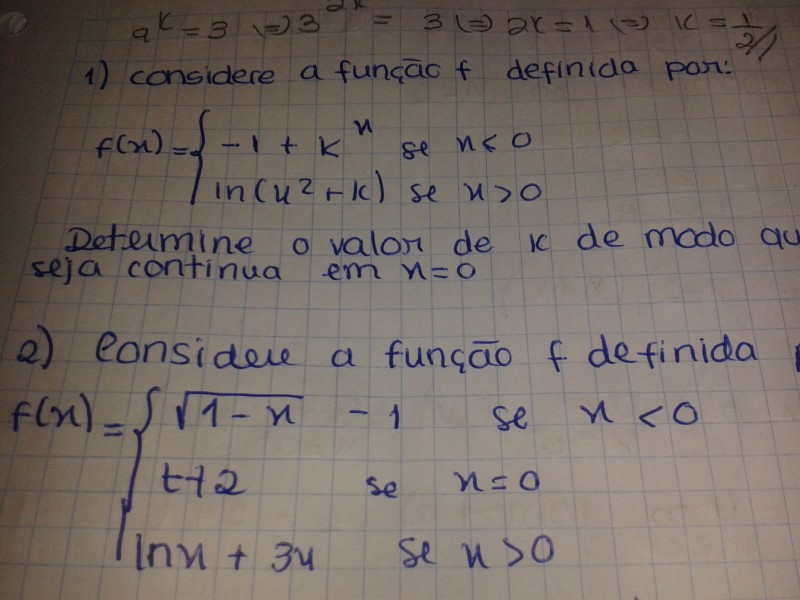 9^k = 3 ⇔ 3^2k = 3 ⇔ 2k = 1 ⇔ k = 1/2//
1) considere a função f definida por:
f(x) = { -1 + k^x se x < 0
ln(x² + k) se x > 0
Determine o valor de k de modo qu
seja continua em x = 0
2) Considere a função f definida
f(x) = { √(1 - x) - 1 se x < 0
t + 2 se x = 0
ln x + 3x se x > 0